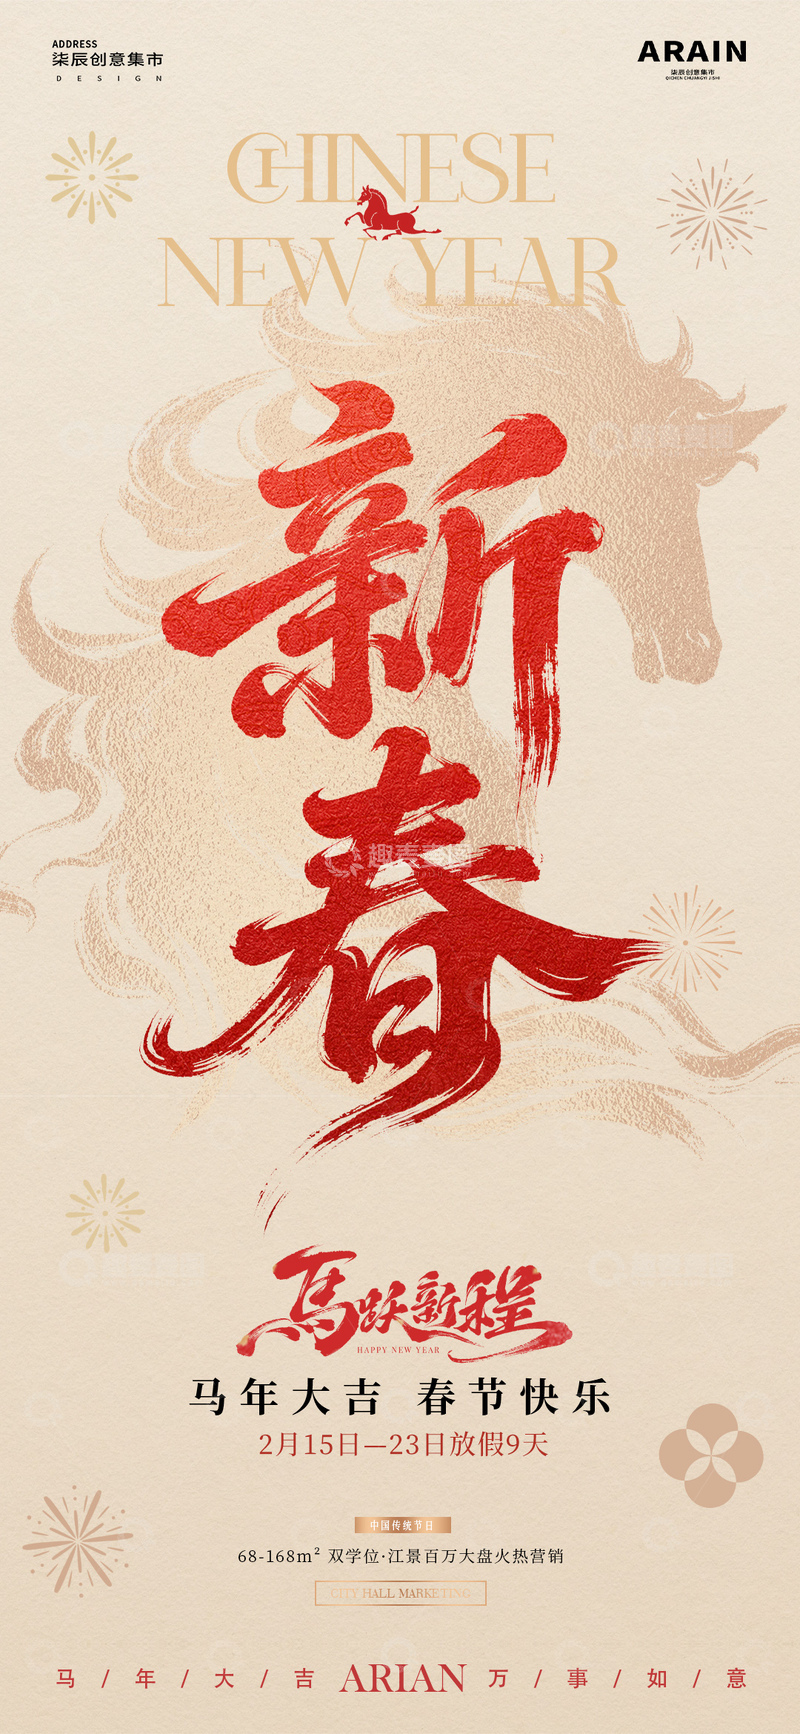 ADDRESS
柒辰创意集市
DESIGN
ARAIN
柒辰创意集市
QICHEN CHUANGYI JISHI
CHINESE
NEW YEAR
新
春
馬跃新程
HAPPY NEW YEAR
马年大吉 春节快乐
2月15日—23日放假9天
中国传统节日
68-168m² 双学位·江景百万大盘火热营销
CITY HALL MARKETING
马/年/大/吉 ARIAN 万/事/如/意